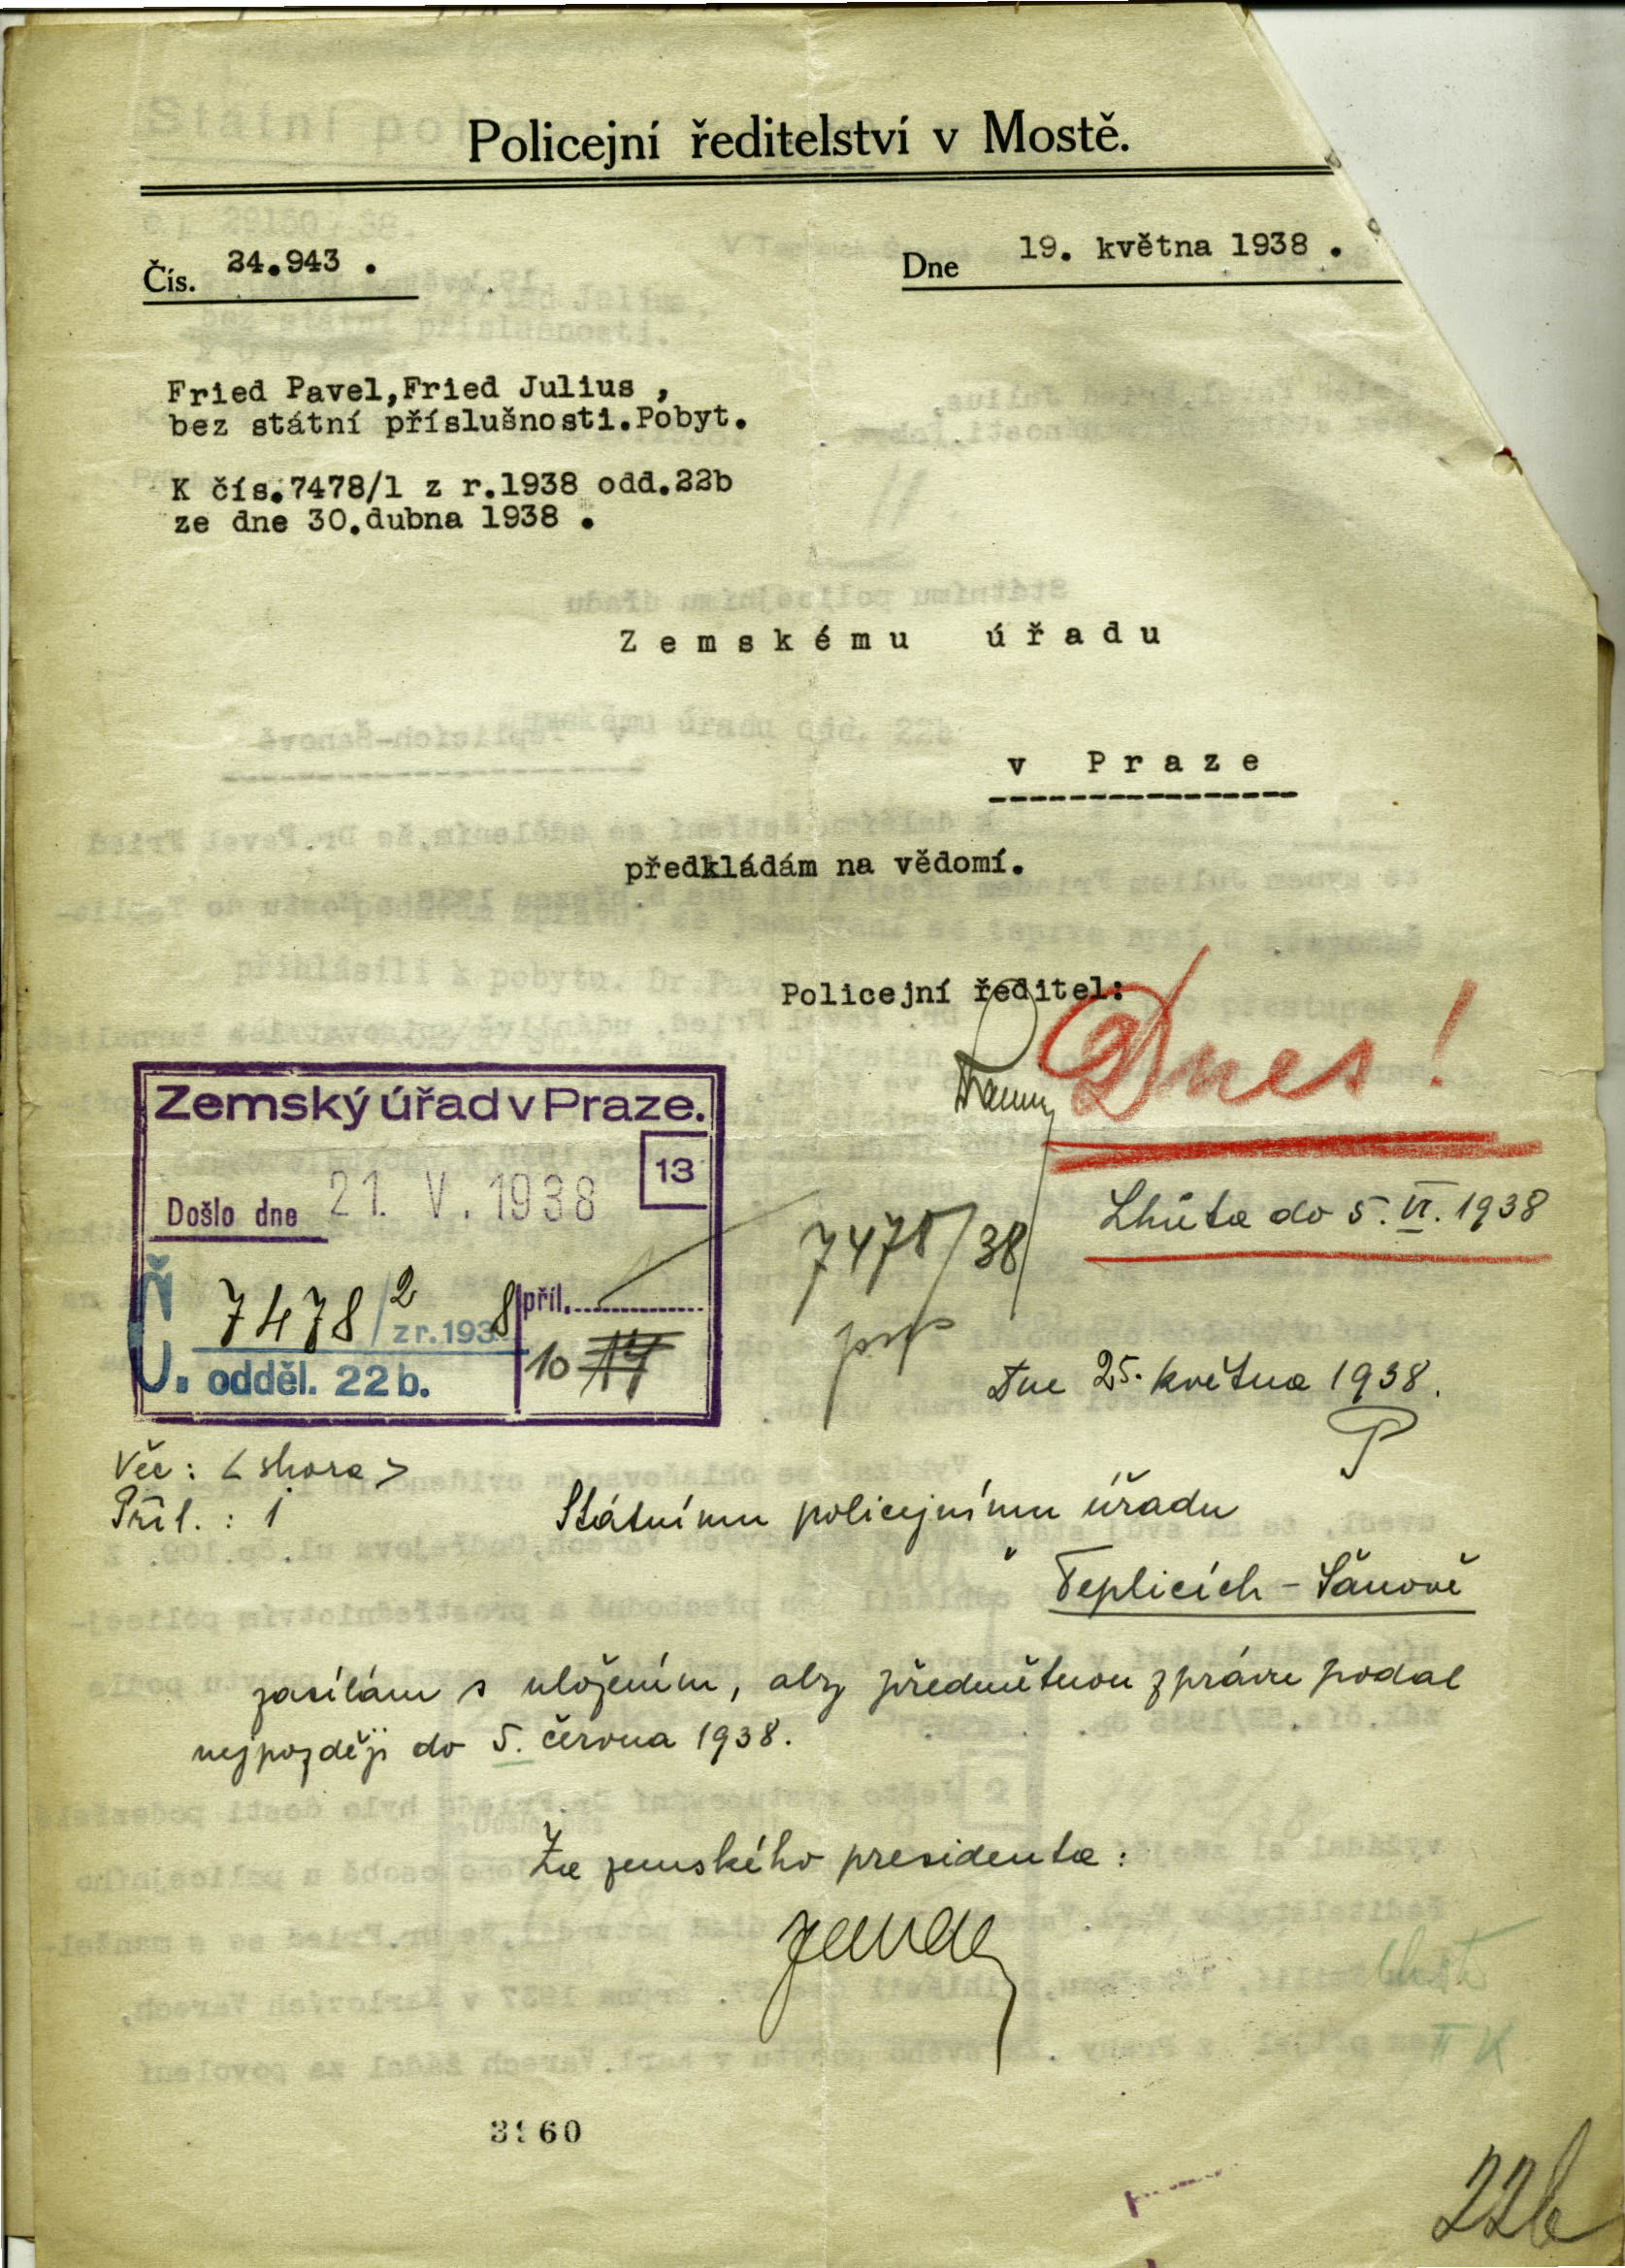 Policejní ředitelství v Mostě.
Čís. 24.943 .
Dne 19. května 1938 .
Fried Pavel,Fried Julius ,
bez státní příslušnosti.Pobyt.
K čís.7478/1 z r.1938 odd.22b
ze dne 30.dubna 1938 .
Zemskému úřadu
v Praze
předkládám na vědomí.
Policejní ředitel:
Dnes!
Zemský úřad v Praze.
13
Došlo dne 21. V. 1938
Č. 7478/2 z r. 1938
příl.
odděl. 22b.
10 14
7478/38
Lhůta do 5. VI. 1938
Dne 25. května 1938.
Věc: <shora>
Příl.: 1
Státnímu policejnímu úřadu
v Teplicích - Šanově
zasílám s uložením, aby předmětnou zprávu podal
nejpozději do 5. června 1938.
Za zemského presidenta:
3160
22b